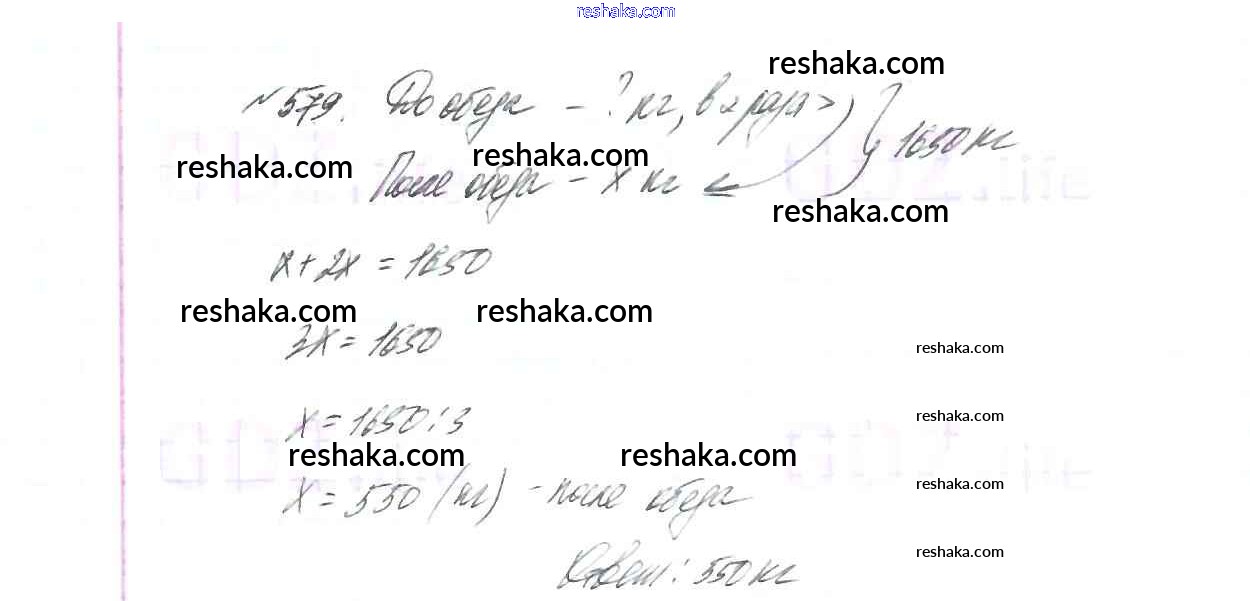 reshaka.com
reshaka.com
№579. До обеда – ? кг, в 2 раза > } 1650 кг
reshaka.com reshaka.com
После обеда – х кг
reshaka.com
х + 2х = 1650
reshaka.com reshaka.com
3х = 1650
reshaka.com
х = 1650 : 3
reshaka.com
reshaka.com reshaka.com
х = 550 (кг) – после обеда
reshaka.com
Ответ: 550 кг
reshaka.com